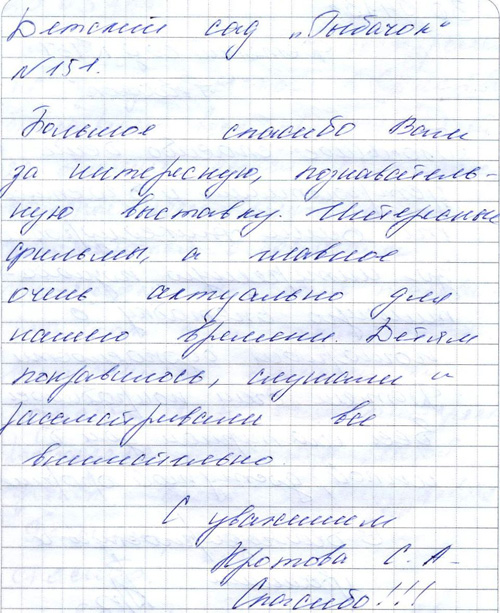 Детский сад „Рыбачок"
N 151.
Большое спасибо Вам
за интересную, познаватель-
ную выставку. Интересные
фильмы, а главное
очень актуально для
нашего времени. Детям
понравилось, слушали и
рассматривали все
внимательно.
С уважением
Кротова С. А-
Спасибо!!!